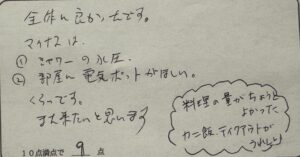 全体に良かったです。
マイナスは、
① シャワーの水圧
② 部屋に電気ポットがほしい。
くらいです。
また来たいと思います
料理の量がちょうど
よかった
カニ飯テイクアウトが
うれしい
10点満点で 9 点